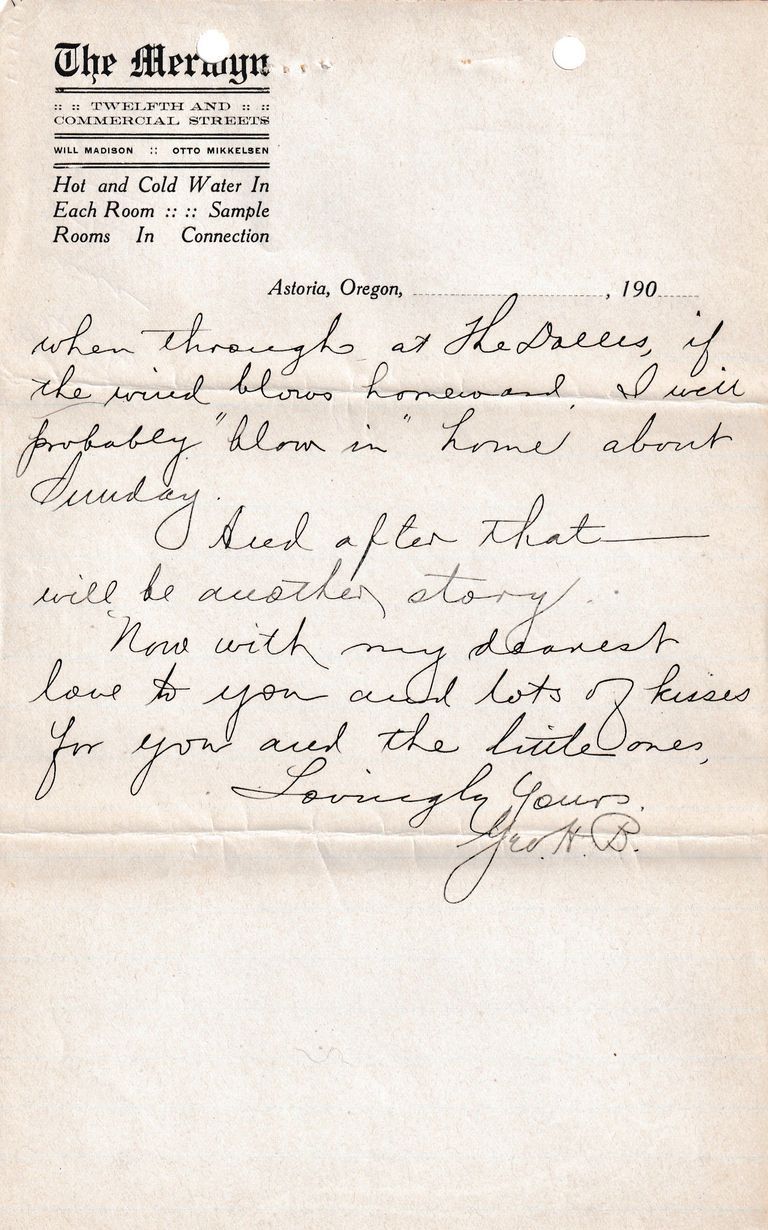 The Merwyn
:: :: TWELFTH AND :: ::
COMMERCIAL STREETS
WILL MADISON :: OTTO MIKKELSEN
Hot and Cold Water In
Each Room :: :: Sample
Rooms In Connection
Astoria, Oregon, , 190
when through at The Dalles, if
the wind blows homeward, I will
probably "blow in" home about
Sunday.
And after that—
will be another story.
Now with my dearest
love to you and lots of kisses
for you and the little ones,
Lovingly Yours.
Geo. H. B.